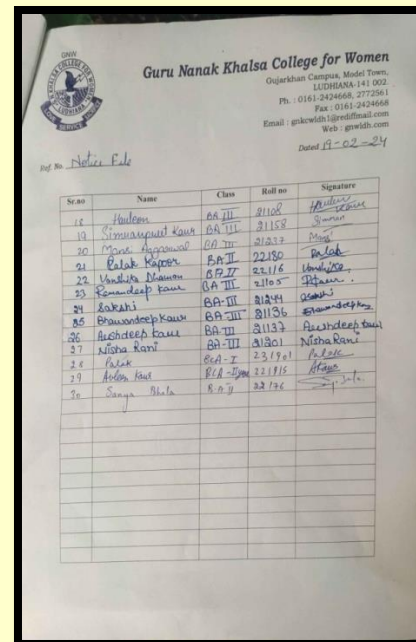 GNW
KHALSA COLLEGE FOR WOMEN
Guru Nanak Khalsa College for Women
Gujarkhan Campus, Model Town,
LUDHIANA-141 002
Ph. : 0161-2424668, 2772561
Fax : 0161-2424668
Email : gnkcwldh1@rediffmail.com
Web : gnwldh.com
Ref. No. Notice File
Dated 19-02-24
Sr.no Name Class Roll no Signature
18 Harleen BA III 21108
19 Simranpreet Kaur BA III 21158 Simran
20 Mansi Aggarwal BA III 21237 Mansi
21 Palak Kapoor BA II 22180 Palak
22 Vanshika Dhawan BA II 22116 Vanshika
23 Ramandeep Kaur BA III 21105
24 Sakshi BA-III 21244 Sakshi
25 Bhawandeep Kaur BA-III 21136 Bhawandeep Kaur
26 Arshdeep Kaur BA-III 21137 Arshdeep Kaur
27 Nisha Rani BA-III 21201 Nisha Rani
28 Palak BCA-I 231901 Palak
29 Kaur BCA-II year 221915
30 Sanya B.A II 22176